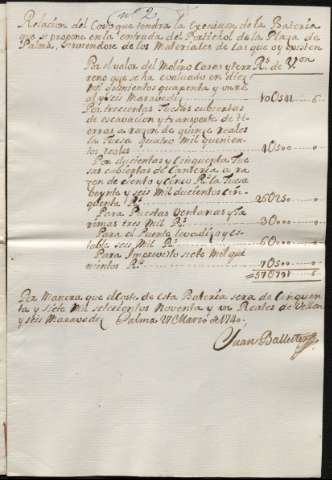 nº 2
Relacion del Coste que tendra la Execucion de la Bateria
que se propone en la entrada del Portichol de la Plaza de
Palma, sirviendose de los Materiales de las que oy existen
Rs. de Von
Por el valor del Molino Casas y terr
reno que se ha evaluado en diez
mil quinientos quarenta y un re
al y seis Maravedis 100541 6
Por trescientas Tuesas cubicas
de escavacion y transporte de tie
rras a razon de quinze reales
la Tuesa quatro Mil quinien
tos reales 40500
Por ducientas y cinquenta Tue
sas cubicas de Canteria a ra
zon de ciento y cinco Rs. la Tuesa
veynte y seis Mil ducientos cin
quenta Rs. 260250
Para Puertas Ventanas y Ta
rimas tres mil Rs. 30000
Para el Puente levadizo y es
table seis Mil Rs. 60000
Para Imprevisto siete Mil qui
nientos Rs. 70500
570791 6
Por Manera que el coste de esta Bateria sera de Cinquen
ta y siete Mil setecientos Noventa y un Reales de Vellon
y seis Maravedis Palma 27 Marzo de 1740
Juan Ballester